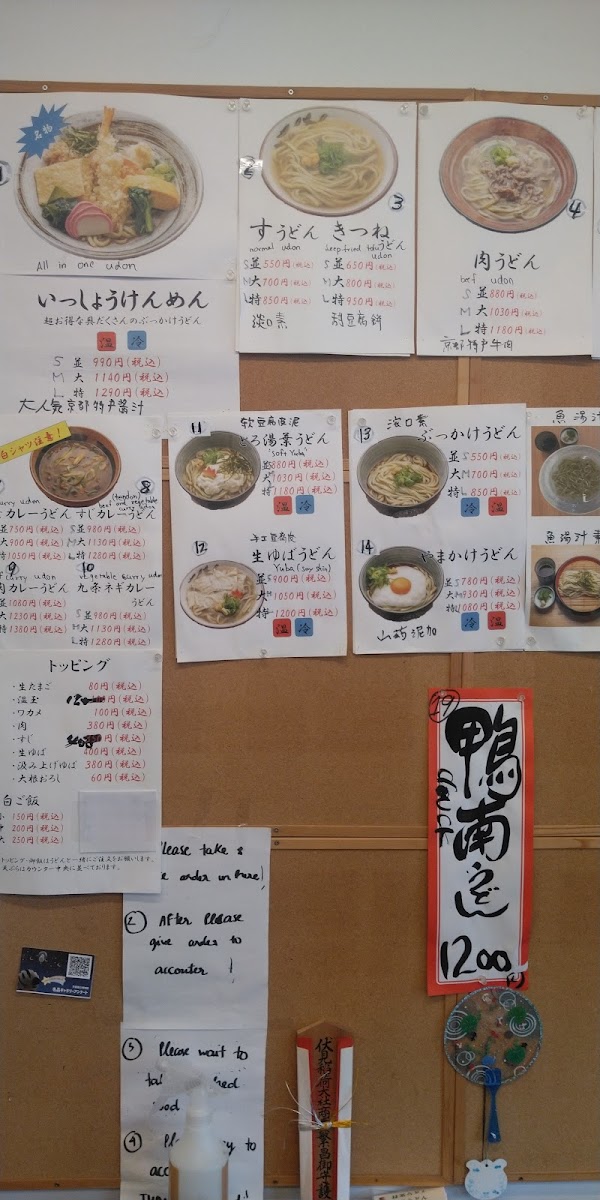 名物
All in one udon
いっしょうけんめん
超お得な具だくさんのぶっかけうどん
温 冷
S 並 990円(税込)
M 大 1140円(税込)
L 特 1290円(税込)
大人気京都特戸醤汁
2
3
すうどん きつねうどん
normal udon deep fried tofu udon
S並550円(税込) S並650円(税込)
M大700円(税込) M大800円(税込)
L特850円(税込) L特950円(税込)
淡口素
4
肉うどん
beef udon
S 並880円(税込)
M 大1030円(税込)
L 特1180円(税込)
京都特戸牛肉
白シャツ注意!
8
curry udon
カレーうどん すじカレーうどん
並750円(税込) S並980円(税込)
大900円(税込) M大1130円(税込)
特1050円(税込) L特1280円(税込)
9
10
curry udon vegetable curry udon
肉カレーうどん 九条ネギカレーうどん
並1080円(税込) S並980円(税込)
大1230円(税込) M大1130円(税込)
特1380円(税込) L特1280円(税込)
11
軟豆腐皮泥
とろ湯葉うどん
"Soft Yuba"
並880円(税込)
大1030円(税込)
特1180円(税込)
温 冷
12
手工豆腐皮
生ゆばうどん
Yuba (soy skin)
並900円(税込)
大1050円(税込)
特1200円(税込)
温 冷
13
淡口素
ぶっかけうどん
並S550円(税込)
大M700円(税込)
特L850円(税込)
温 冷
14
やまかけうどん
並S780円(税込)
大M930円(税込)
特L1080円(税込)
温 冷
山药泥加
魚湯汁
魚湯汁素
トッピング
・生たまご 80円(税込)
・温玉 (税込)
・ワカメ 100円(税込)
・肉 380円(税込)
・すじ (税込)
・生ゆば 400円(税込)
・汲み上げゆば 380円(税込)
・大根おろし 60円(税込)
白ご飯
小 150円(税込)
中 200円(税込)
大 250円(税込)
トッピング・御飯はうどんと一緒にご注文をお願いします。
天ぷらはカウンター中央に並べております。
19
鴨南うどん
duck
1200
Please take a
order in here!
② After Please
give order to
accounter !
③ Please wait to
④
伏見稲荷大社